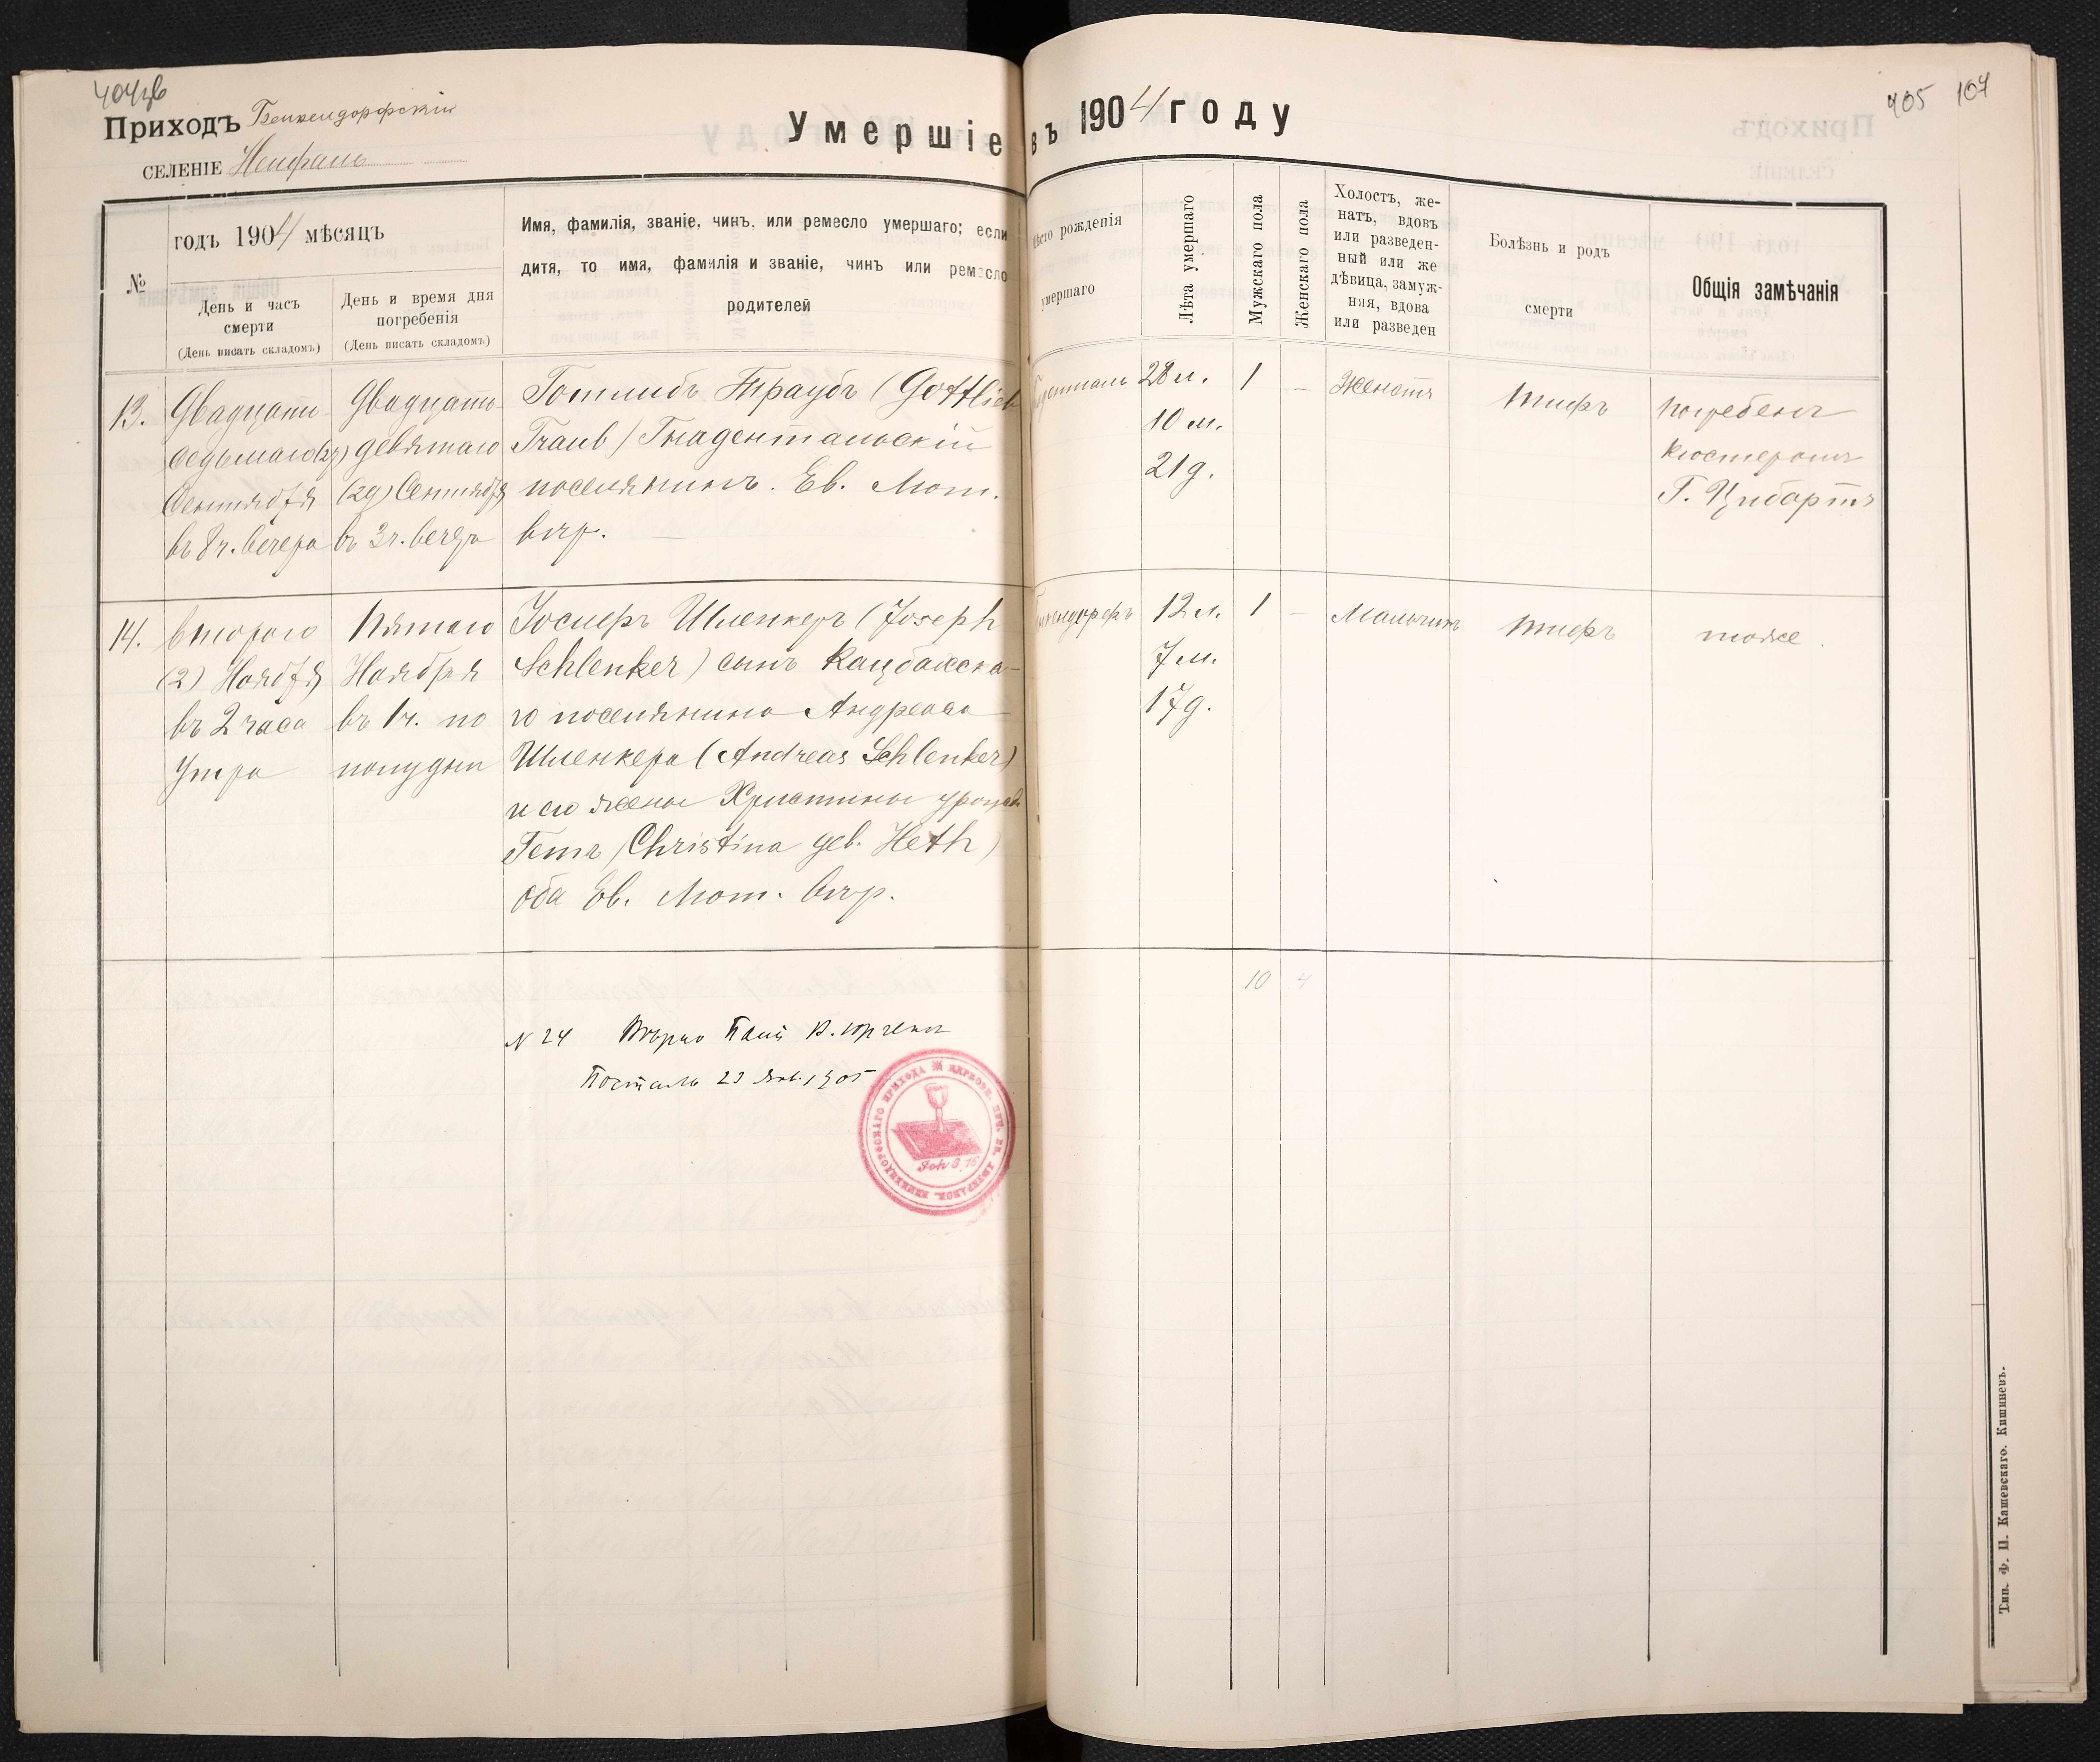 404об
Приходъ Бенкендорфскій
СЕЛЕНІЕ Нейфаль
Умершіе въ 1904 году
405 107
№
годъ 1904 мѣсяцъ
День и часъ смерти
(День писать складомъ)
День и время дня погребенія
(День писать складомъ)
Имя, фамилія, званіе, чинъ, или ремесло умершаго; если
дитя, то имя, фамилія и званіе, чинъ или ремесло
родителей
Мѣсто рожденія
умершаго
Лѣта умершаго
Мужскаго пола
Женскаго пола
Холостъ, же-
натъ, вдовъ
или разведен-
ный или же
дѣвица, замуж-
няя, вдова
или разведен
Болѣзнь и родъ
смерти
Общія замѣчанія
13.
Двадцать
седьмаго (27)
Сентября
въ 8 ч. вечера
Двадцать
девятаго
(29) Сентября
въ 3 ч. вечера
Готлибъ Траубъ (Gottlieb
Traub) Гнаденталскій
поселянинъ. Ев. Лют.
вѣр.
28 л.
10 м.
21 д.
1
—
Женатъ
Тифъ
погребенъ
кюстеромъ
Г. Цибартъ
14.
Второго
(2) Ноября
въ 2 часа
утра
Пятаго
Ноября
въ 1 ч. по
полудни
Іосифъ Шленкеръ (Joseph
Schlenker) сынъ Кацбахска-
го поселянина Андреаса
Шленкера (Andreas Schlenker)
и его жены Христины урожд.
Гетъ (Christina geb. Heth)
оба Ев. Лют. вѣр.
12 л.
7 м.
17 д.
1
—
Мальчикъ
Тифъ
тоже.
10 4
N 24 Вѣрно Паст.
Постталь 23 Янв. 1905
Joh 3, 16
Тип. Ф. П. Кашевскаго. Кишиневъ.